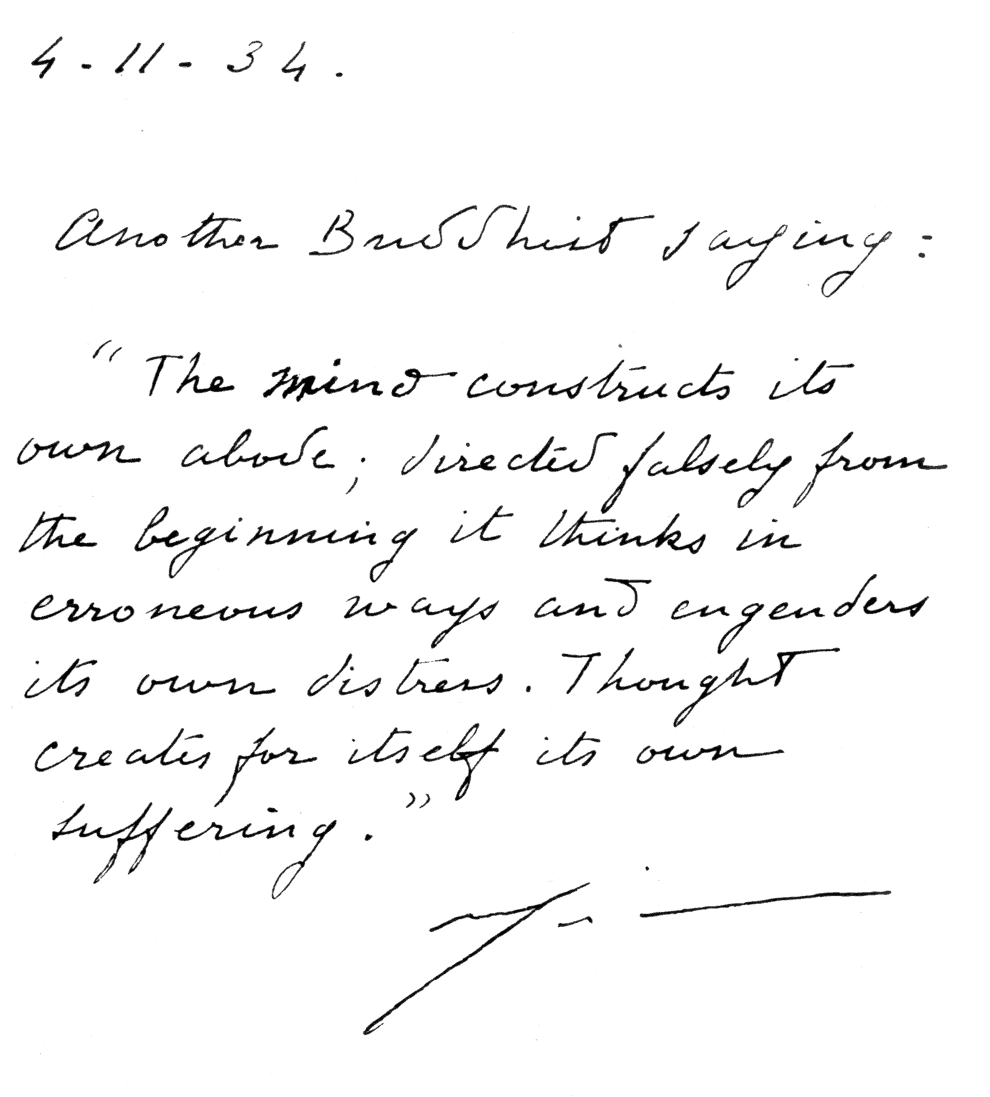 4-11-34.
Another Buddhist saying:
"The mind constructs its
own abode; directed falsely from
the beginning it thinks in
erroneous ways and engenders
its own distress. Thought
creates for itself its own
suffering."